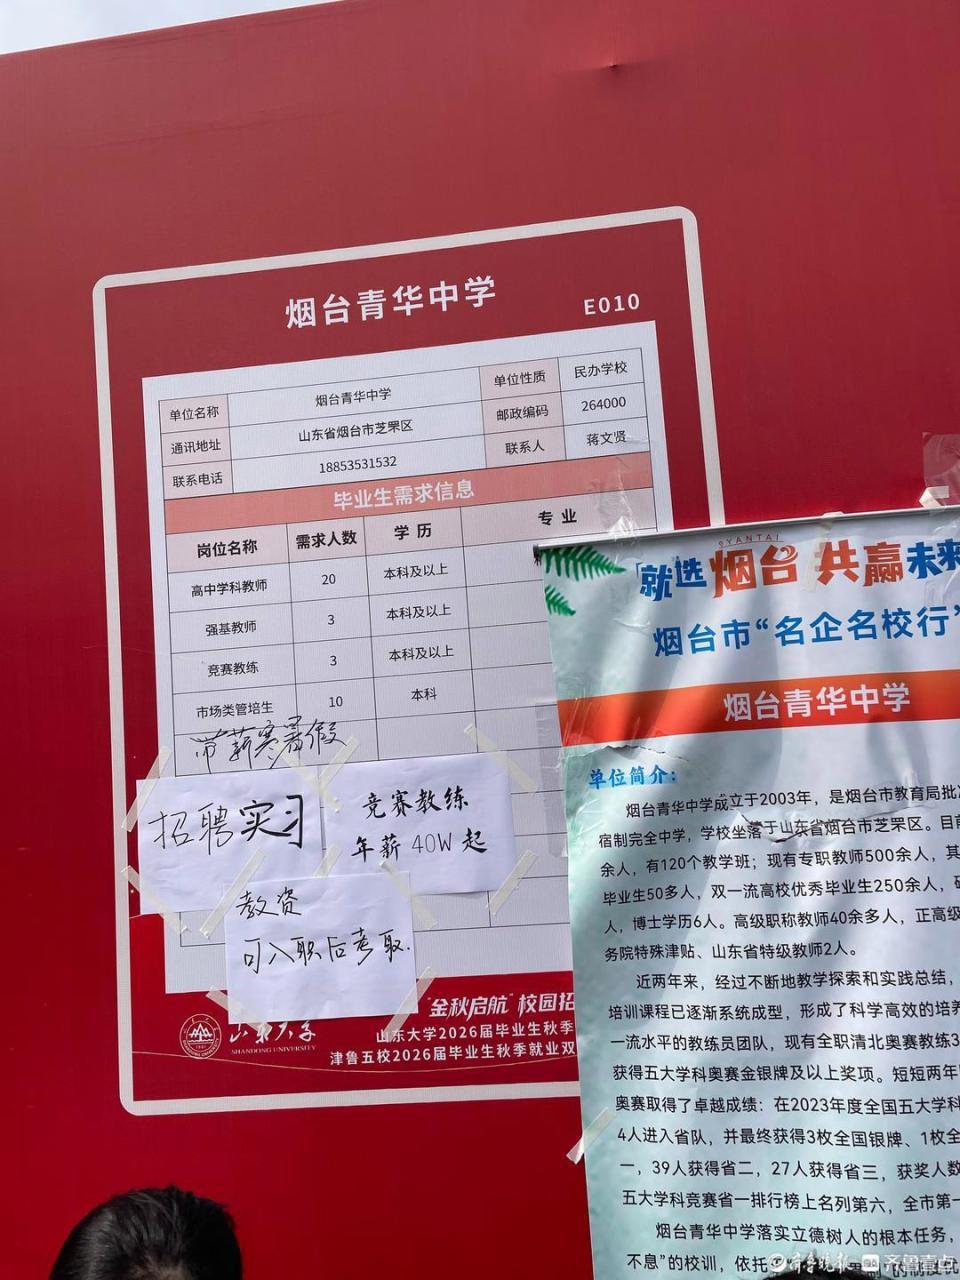 烟台青华中学
E010
单位名称 烟台青华中学 单位性质 民办学校
通讯地址 山东省烟台市芝罘区 邮政编码 264000
联系电话 18853531532 联系人 蒋文贤
毕业生需求信息
岗位名称 需求人数 学历 专业
高中学科教师 20 本科及以上
强基教师 3 本科及以上
竞赛教练 3 本科及以上
市场类管培生 10 本科
带薪寒暑假
招聘实习
竞赛教练
年薪40W起
教资
可入职后考取.
"金秋启航"校园招
山东大学
SHANDONG UNIVERSITY
山东大学2026届毕业生秋季
津鲁五校2026届毕业生秋季就业双
YANTAI
「就选烟台 共赢未来
烟台市"名企名校行"
烟台青华中学
单位简介:
烟台青华中学成立于2003年，是烟台市教育局批
宿制完全中学，学校坐落于山东省烟台市芝罘区。目前
余人，有120个教学班；现有专职教师500余人，其
毕业生50多人，双一流高校优秀毕业生250余人，
人，博士学历6人。高级职称教师40余多人，正高级
务院特殊津贴、山东省特级教师2人。
近两年来，经过不断地教学探索和实践总结，
培训课程已逐渐系统成型，形成了科学高效的培养
一流水平的教练员团队，现有全职清北奥赛教练3
获得五大学科奥赛金银牌及以上奖项。短短两年
奥赛取得了卓越成绩：在2023年度全国五大学科
4人进入省队，并最终获得3枚全国银牌、1枚全
一，39人获得省二，27人获得省三，获奖人数
五大学科竞赛省一排行榜上名列第六，全市第一
烟台青华中学落实立德树人的根本任务，
不息"的校训，依托
齐鲁晚报 齐鲁壹点